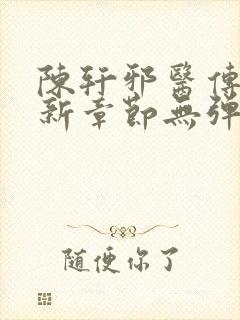 陳轩邪醫傳
新章節無彈
随便你了